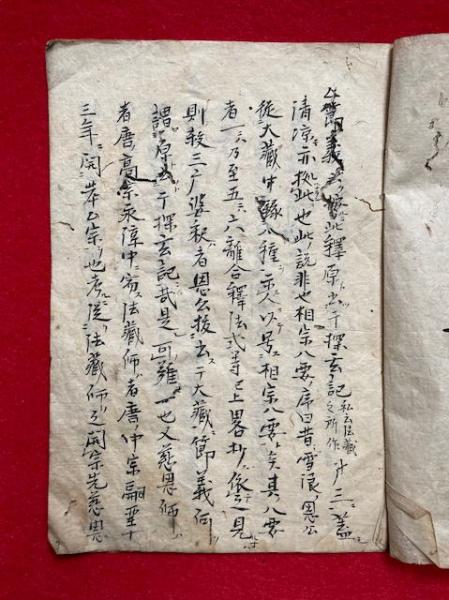 節義云此釋原出于探玄記私云法藏之所作廾三蓋
清凉亦拠此也此說非也相宗八要序曰昔雪浪恩公
從大藏中録八種示人以号相宗八要矣其八要
者一乃至五六離合釋法式等已上畧抄依之見
則殺三广娑釈者恩公抜出于大藏節義何
謂原出于探玄記哉是可難一也又慈恩師
者唐高宗永淳中寂法藏師者唐中宗嗣聖十
三年開華乙宗也考從法藏師之開宗先慈恩